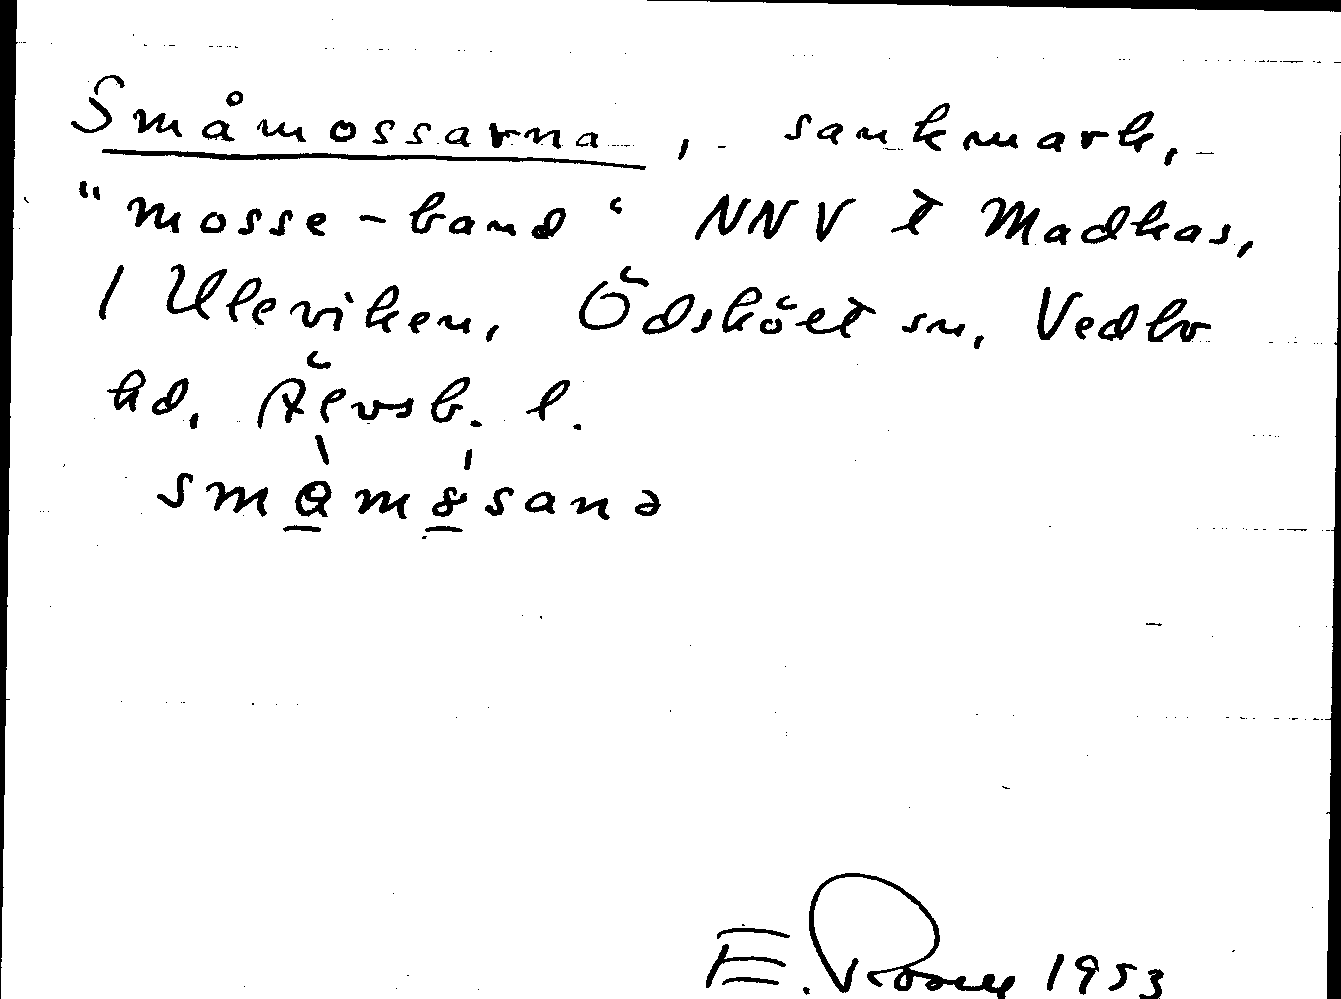 Småmossarna, sankmark,
"mosse-band" NNV t Madkas,
1 Uleviken, Ödskölt sn, Vedbo
hd, Älvsb. l.
E. 1953